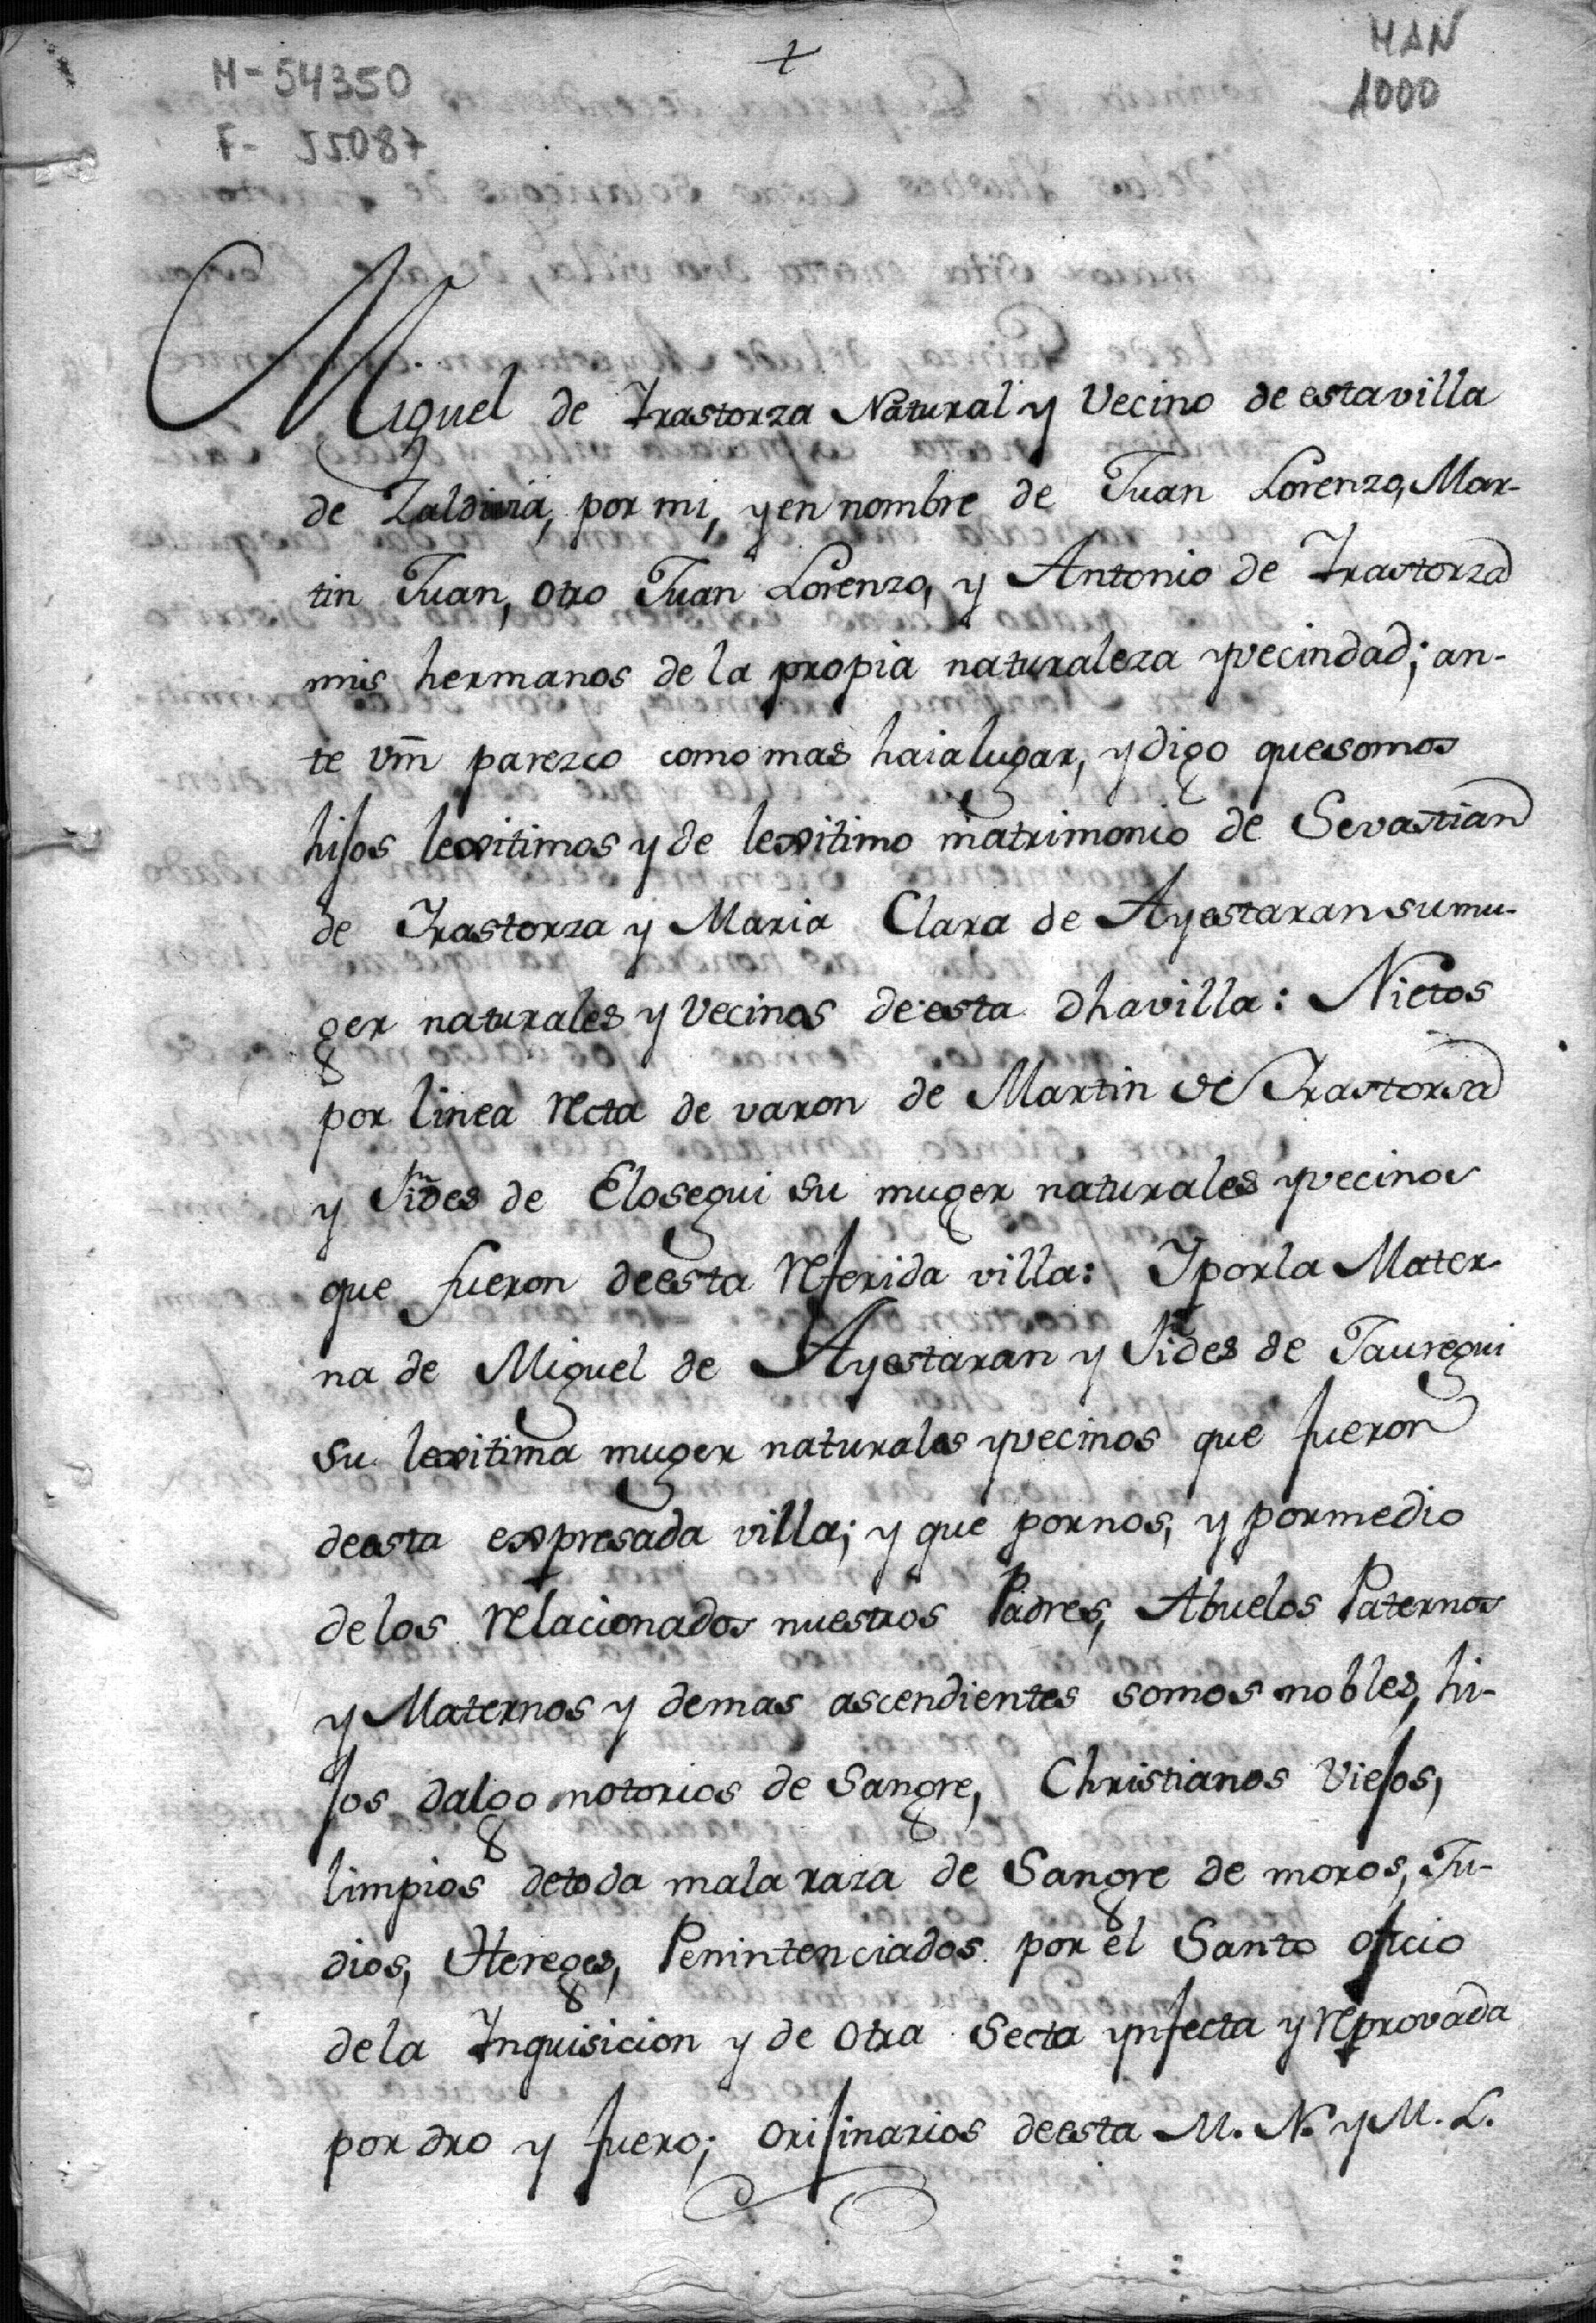 M-54350
F- 55087
+
MAN
1000
Miguel de Irastorza Natural y Vecino de esta villa
de Zaldivia, por mi, y en nombre de Juan Lorenzo, Mar-
tin Juan, otro Juan Lorenzo, y Antonio de Irastorza
mis hermanos de la propia naturaleza y vecindad; an-
te Vm̄ parezco como mas haia lugar, y digo que somos
hijos lexitimos y de lexitimo matrimonio de Sevastian
de Irastorza y Maria Clara de Ayestaran su mu-
ger naturales y Vecinos de esta dha villa: Nietos
por linea recta de varon de Martin de Irastorza
y de Elosegui su muger naturales y vecinos
que fueron de esta referida villa: Y por la Mater-
na de Miguel de Ayestaran y de Jauregui
su lexitima muger naturales y vecinos que fueron
de esta expresada villa; y que por nos, y por medio
de los relacionados nuestros Padres, Abuelos Paternos
y Maternos y demas ascendientes somos nobles, hi-
jos dalgo notorios de Sangre, Christianos Viejos,
limpios de toda mala raza de Sangre de moros, Ju-
dios, Hereges, Penintenciados por el Santo oficio
de la Inquisicion y de otra Secta ynfecta y reprovada
por dro y fuero; orijinarios de esta M. N. y M. L.